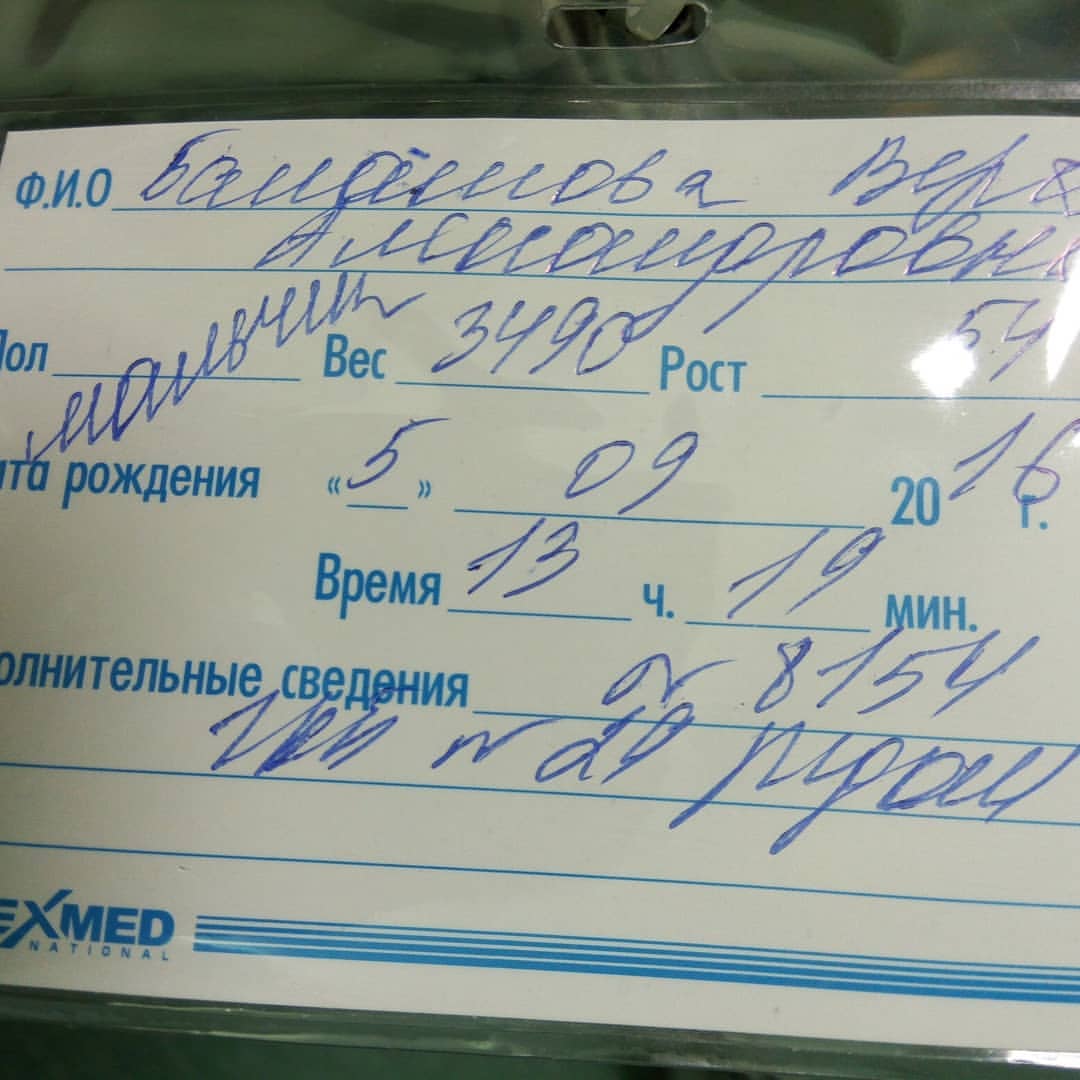 Ф.И.О Вера
Александровна
Пол мальчик Вес 3490 Рост 54
ата рождения «5» 09 2016 г.
Время 13 ч. 19 мин.
олнительные сведения 8154
№ 29
EXMED
NATIONAL